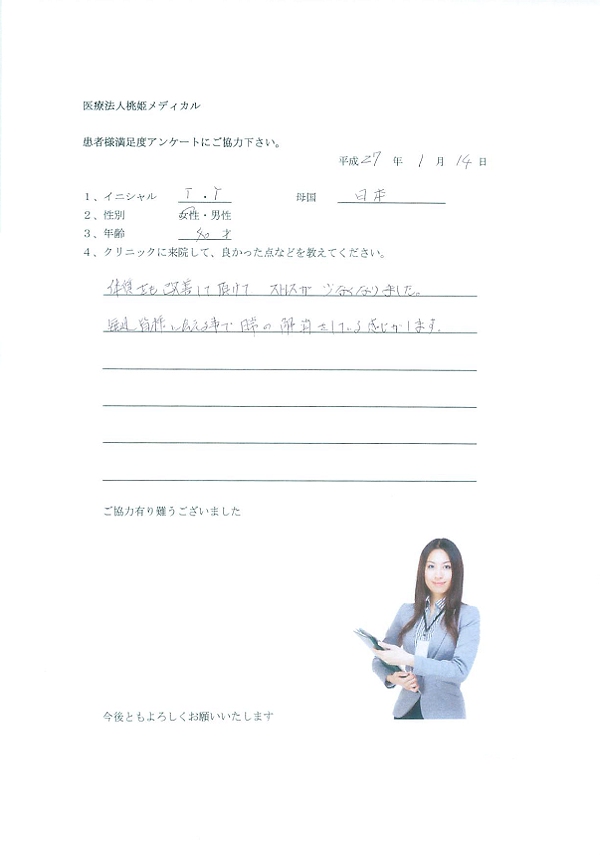 医療法人桃姫メディカル
患者様満足度アンケートにご協力下さい。
平成 27 年 1 月 14 日
1、イニシャル T・Y 母国 日本
2、性別 女性・男性
3、年齢 才
4、クリニックに来院して、良かった点などを教えてください。
体質を改善して頂けて ストレスが 少なくなりました。
皆様に会える事で の 解消をしている感じがします。
ご協力有り難うございました
今後ともよろしくお願いいたします